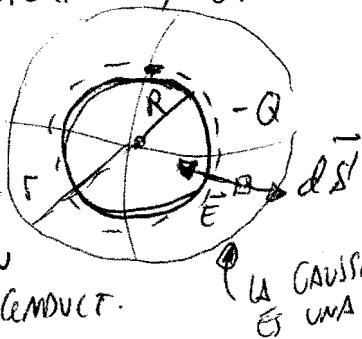 R
-Q
r
E
dS
CONDUCT.
LA GAUSS
ES UNA